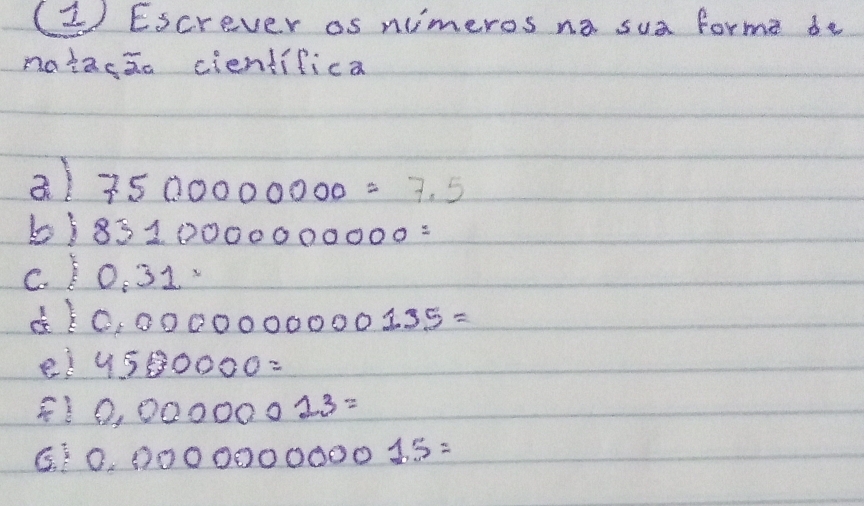 (1) Escrever os números na sua forma de
notação científica
a) 7500000000 = 7.5
b) 8310000000000=
c) 0,31=
d) 0,0000000000135=
e) 4500000=
f) 0,000000013=
G) 0,000000000015=